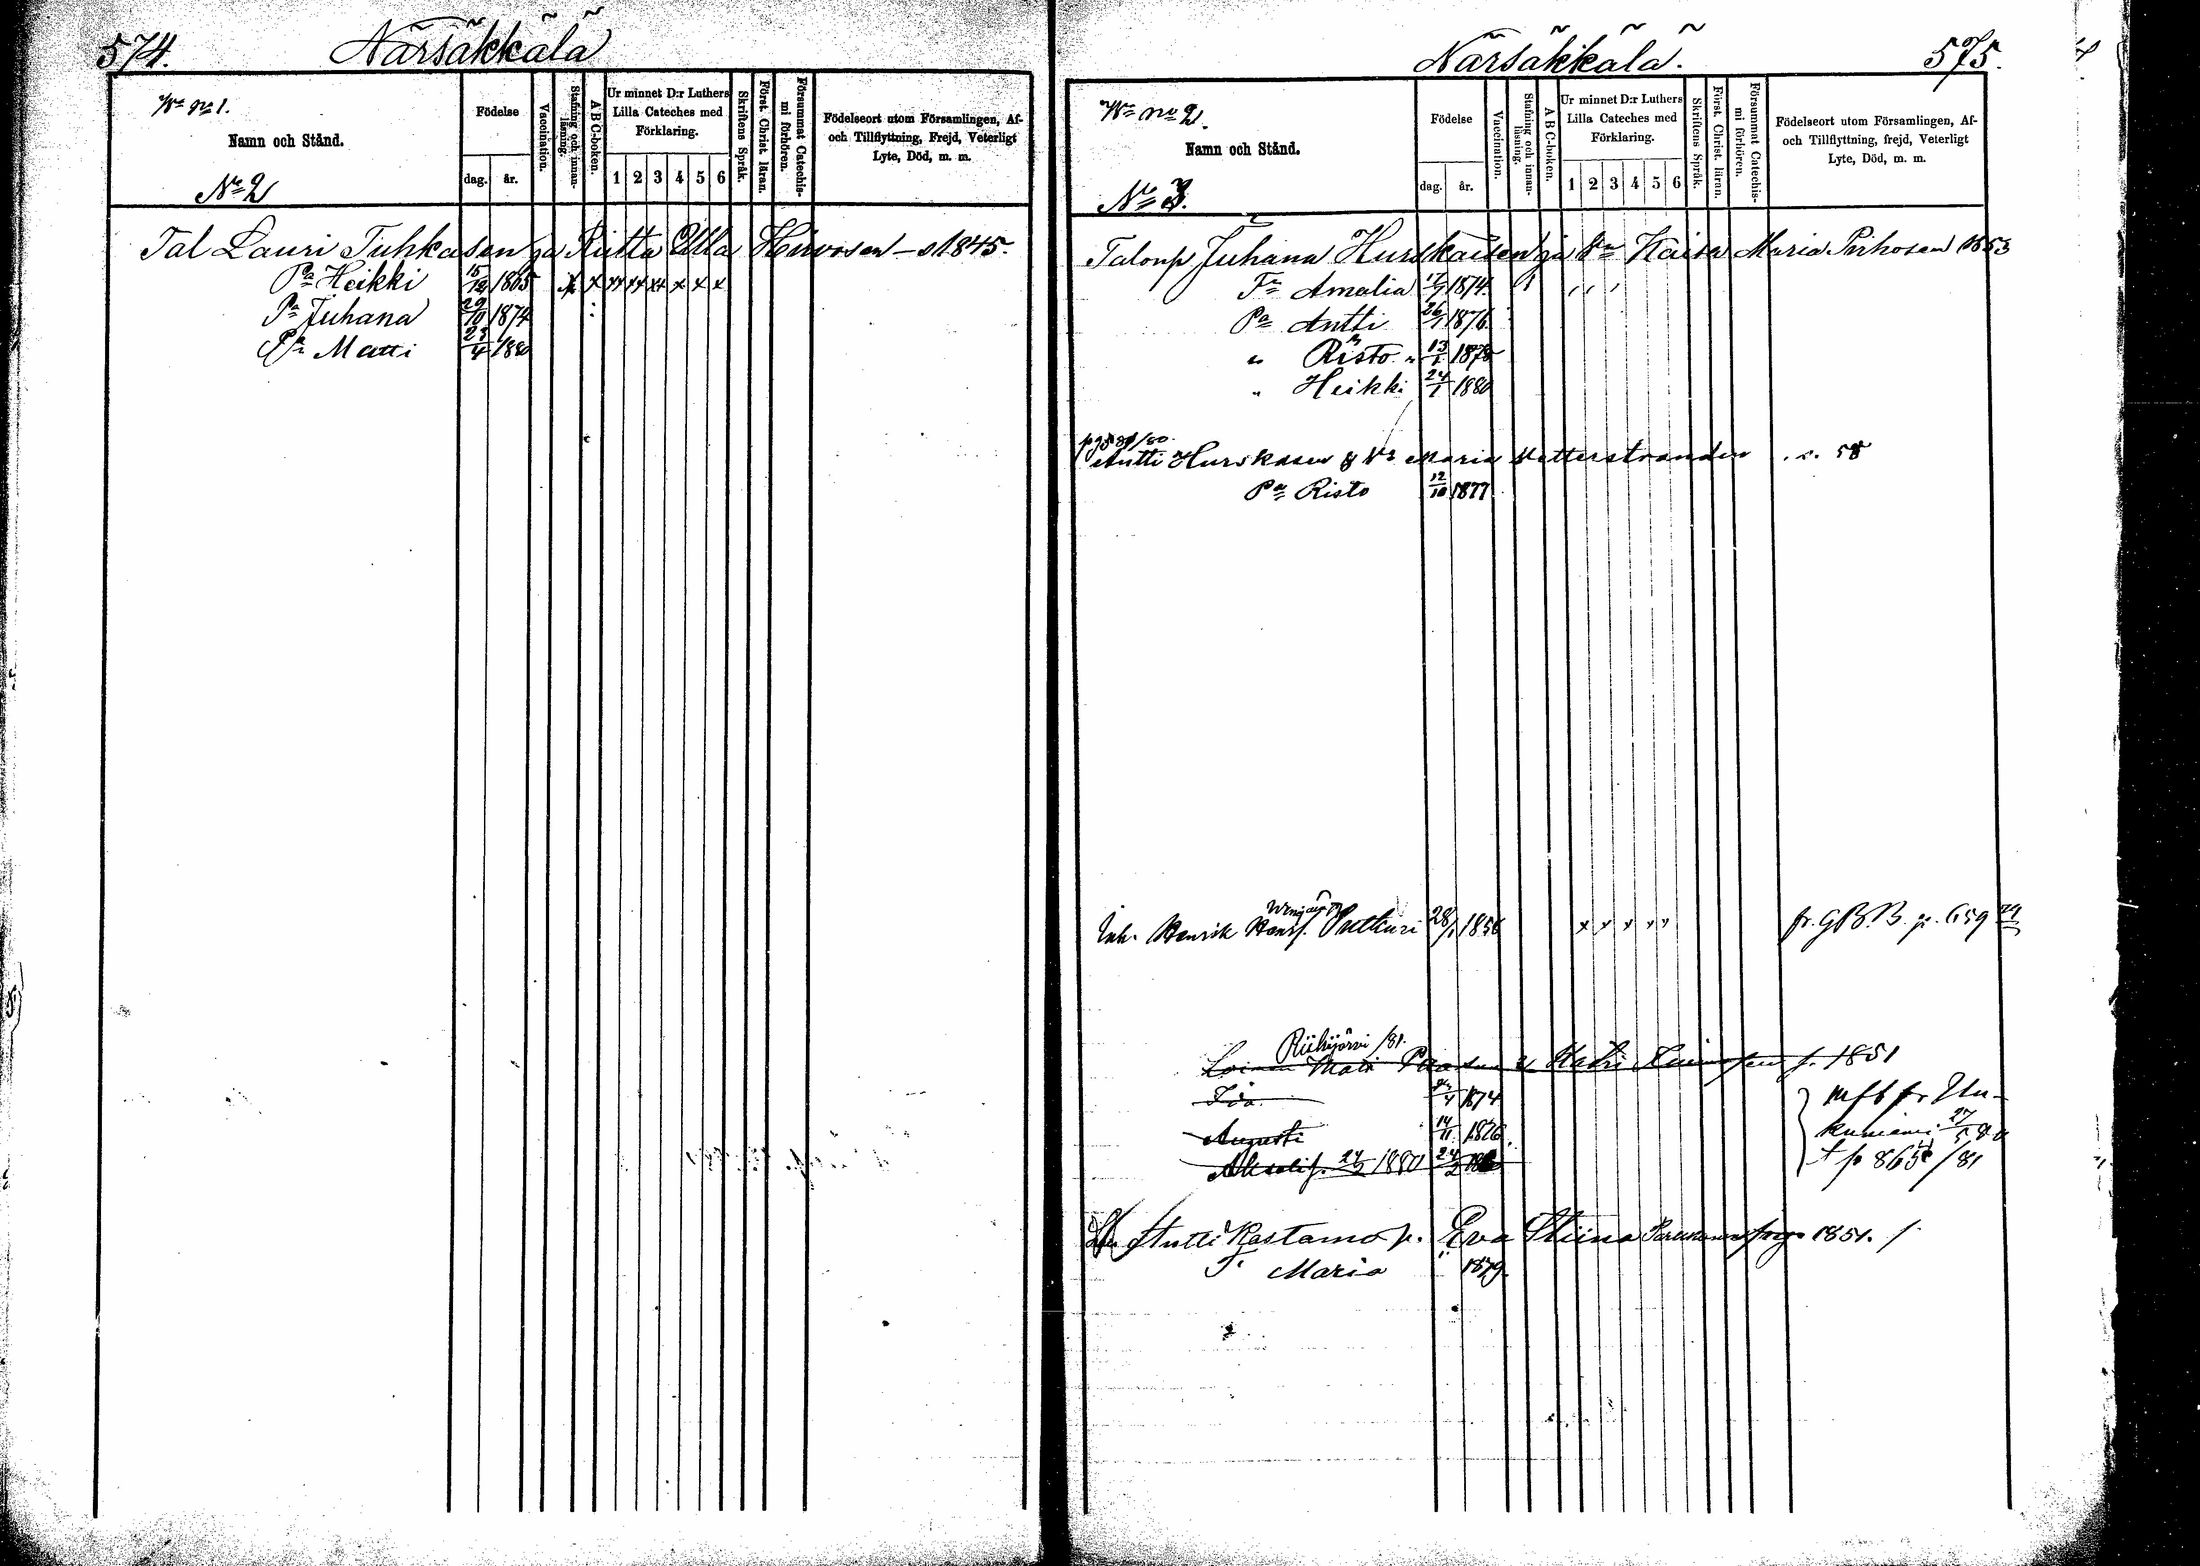 574.
Närsäkkälä
Wa no 1.
Namn och Stånd.
No 2
Födelse
dag.
år.
Vaccination.
Stafning och innan-
läsning.
A B C-boken.
Ur minnet D:r Luthers
Lilla Cateches med
Förklaring.
1 2 3 4 5 6
Skriftens Språk.
Först. Christ. läran.
Försummat Catechis-
mi förhören.
Födelseort utom Församlingen, Af-
och Tillflyttning, Frejd, Veterligt
Lyte, Död, m. m.
Tal Lauri Tuhkasen ja Riitta Ulla Hirvosen – s 1845.
Pa Heikki 15/12 1865 x x xx xx xx x x x
Pa Juhana 29/10 1874
Pa Matti 23/4 1880
Närsäkkälä.
575.
Wa no 2.
Namn och Stånd.
No 3.
Födelse
dag.
år.
Vaccination.
Stafning och innan-
läsning.
A B C-boken.
Ur minnet D:r Luthers
Lilla Cateches med
Förklaring.
1 2 3 4 5 6
Skriftens Språk.
Först. Christ. läran.
Försummat Catechis-
mi förhören.
Födelseort utom Församlingen, Af-
och Tillflyttning, frejd, Veterligt
Lyte, Död, m. m.
Talonp Juhana Hurskaisen ja Vm Kaisa Maria Pirhosen 1853
Tr Amalia 1874.
Pa Antti 26/1 1876
" Risto " 13/1 1878
" Heikki 24/1 1880
Antti Hurskasen & Vr Maria Vetterstranden . s. 58
Pa Risto 12/10 1877
Inh. Henrik Hansf. Putkuri 28/1 1856 x x x " " fr. GB.B. p. 659
Riihijärvi /81.
Loinen Matti Paasen & Katri f. 1851
Ida 1874
Augusti 14/11 1876
f. 24/2 1880 24/2
mfb fr Uu-
kuniemi 27/5 80
t p 865 /81
Antti Rastamo p. Eva Stiina 1851.
T. Maria 1879.